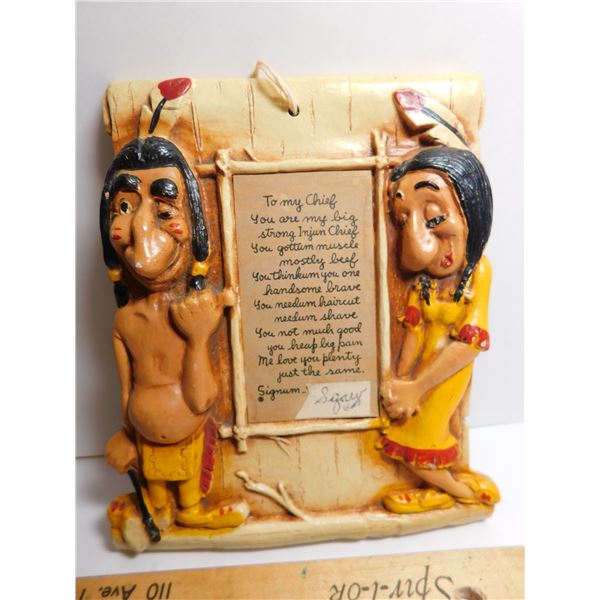 To my Chief
You are my big
strong Injun Chief
You gottum muscle
mostly beef
You thinkum you one
handsome brave
You needum haircut
needum shave
You not much good
you heap big pain
Me love you plenty
just the same.
Signum
110 Ave.
Spir-l-OR